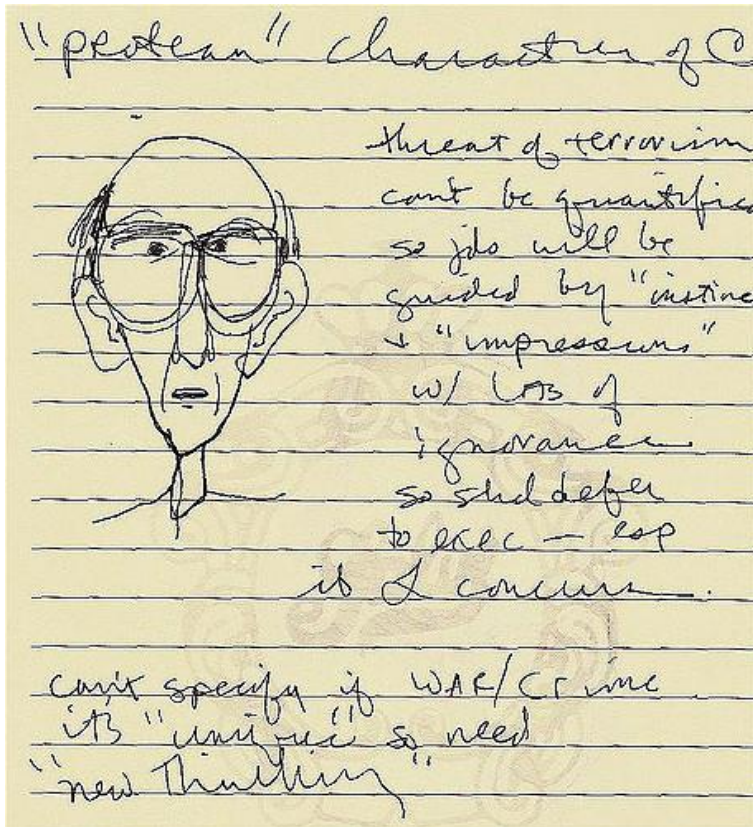 "protean" character of C
threat of terrorism
can't be quantifie
so jds will be
guided by "instinc
+ "impressions"
w/ of
ignorance
so shd defer
to exec — esp
if concurs.
can't specify if WAR/Crime
it's "unique" so need
"new Thinking"